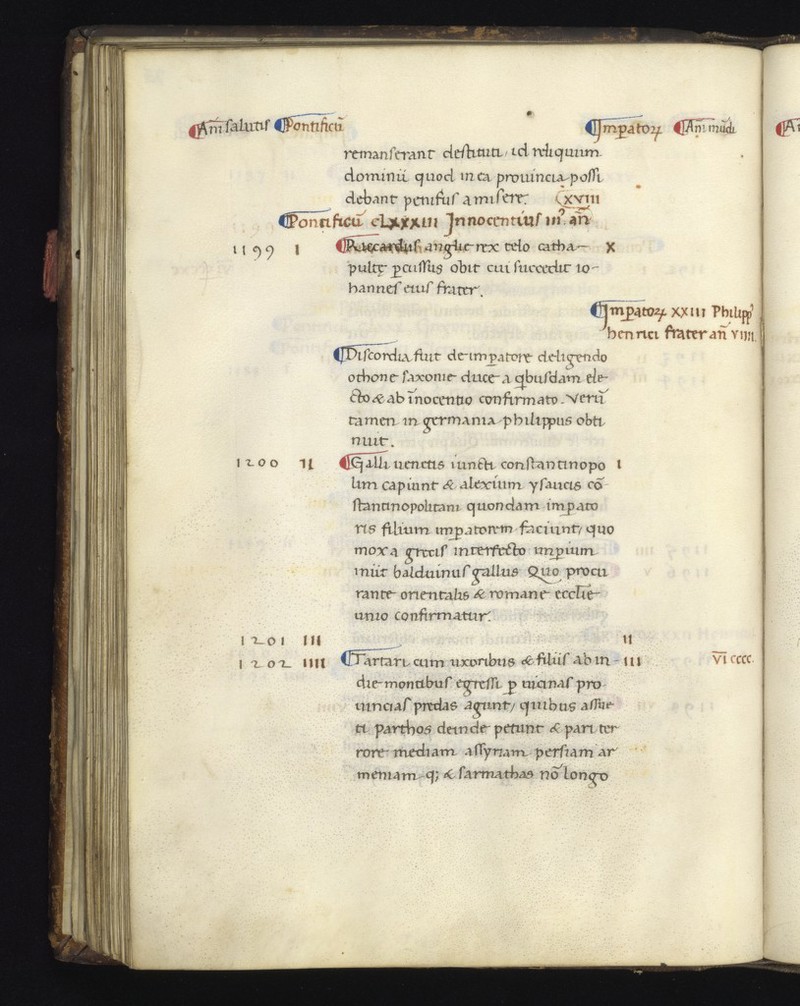 Anī salutis Pontificū Imꝑatoꝝ Anī mūdi
remanserant destituti, id reliquum
dominii quod in ea prouincia possi
debant penitus amisere.
Pontificū cLxxxiii Innocentius iii⁹ añ xviii
1199 i Riccardus anglie rex telo catha- x
pulte ꝑcussus obit cui succedit io-
hannes eius frater.
Imꝑatoꝝ xxiii Philipp⁹
henrici frater añ viiii.
Discordia fuit de imꝑatore deligendo
othone saxonie duce a qbusdam ele-
cto & ab īnocentio confirmato. Verū
tamen in germania philippus obti
nuit.
1200 ii Galli uenetis iuncti constantinopo i
lim capiunt & alexium ysaacis cō-
stantinopolitani quondam imꝑato
ris filium imꝑatorem faciunt, quo
mox a grecis interfecto imꝑium
iniit balduinus gallus Quo procu
rante orientalis & romane ecclīe
unio confirmatur.
1201 iii ii
1202 iiii Tartari cum uxoribus & filiis ab in- iii vī cccc.
die montibus egressi ꝑ uicinas pro
uincias predas agunt, quibus assue
ti parthos deinde petunt & pari ter
rore mediam assyriam persiam ar
meniam q; & sarmathas nō longo